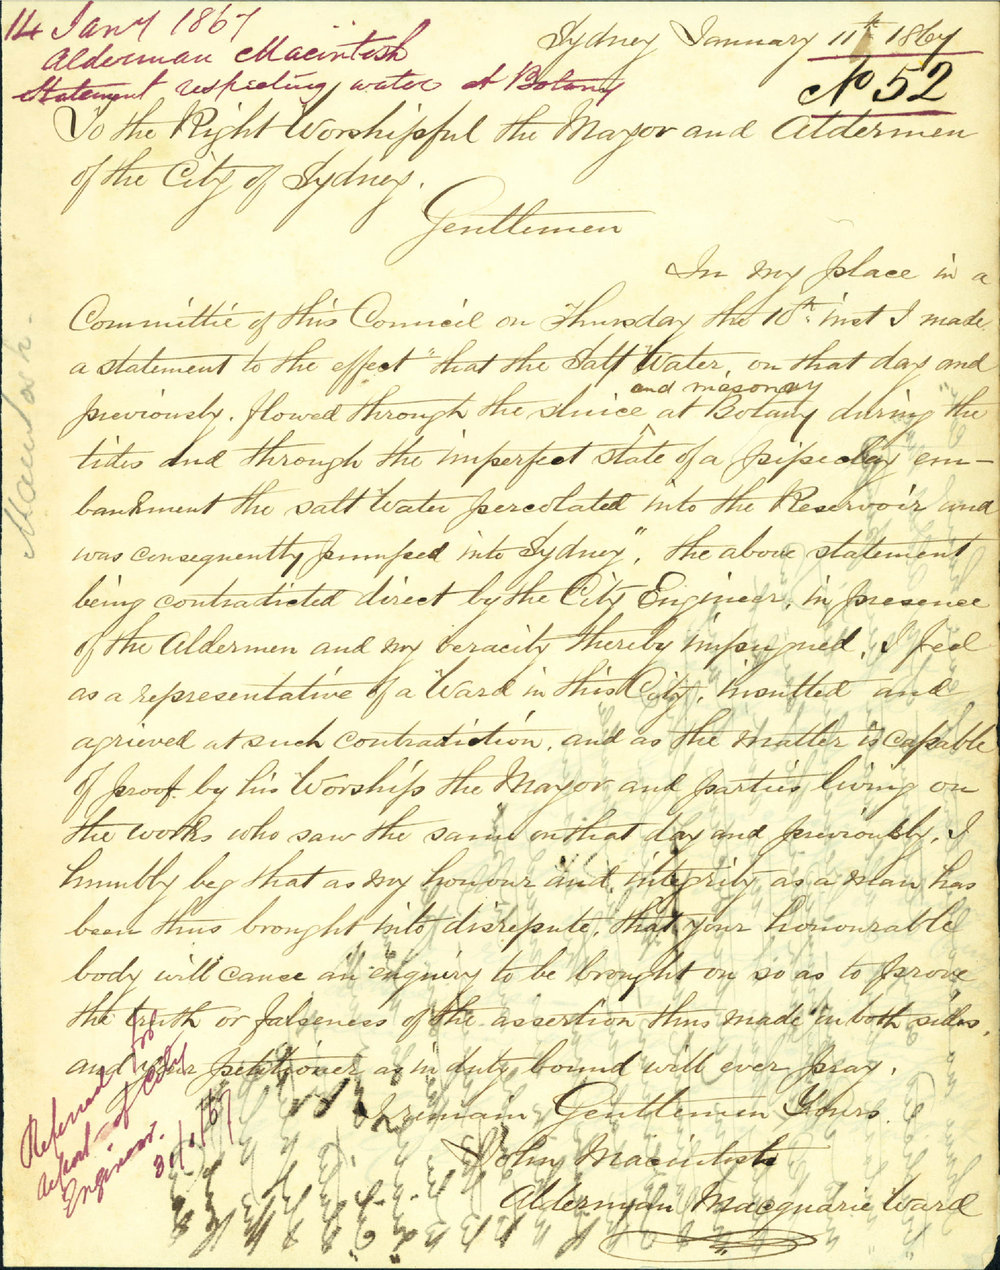 14 Jany 1867
Alderman Macintosh
Statement respecting water at Botany
Sydney January 11th 1867
No 52
To the Right Worshipful the Mayor and Aldermen
of the City of Sydney.
Gentlemen
In my place in a
Committie of this Council on Thursday the 10th inst I made
a statement to the effect "that the Salt Water, on that day and
previously. flowed through the sluice and masonry at Botany during the
tides and through the imperfect state of a pipeclay em-
bankment the salt Water percolated into the Reservoir and
was consequently pumped into Sydney". The above statement
being contradicted direct by the City Engineer, in presence
of the Aldermen and my veracity thereby impugned, I feel
as a representative of a Ward in this City, insulted and
agrieved at such contradiction, and as the matter is capable
of proof by his Worship the Mayor and parties living on
the works who saw the same on that day and previously, I
humbly beg that as my honour and integrity as a man has
been thus brought into disrepute, that your honourable
body will cause an enquiry to be brought on so as to prove
the truth or falseness of the assertion thus made in both sides,
and your petitioner as in duty bound will ever pray.
I remain Gentlemen Yours
John Macintosh
Alderman Macquarie Ward
Macintosh.
Referred for
report of City
Engineer.
31/1/67